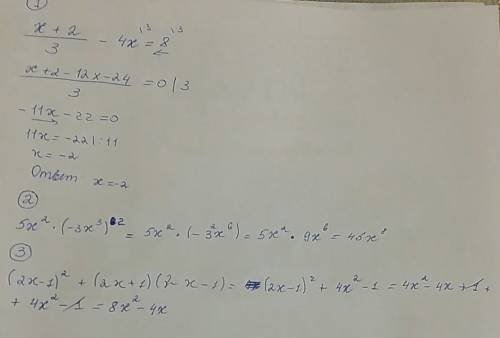 1
x + 2 / 3 - 4x |3 = 8 |3
x + 2 - 12x - 24 / 3 = 0 | 3
- 11x - 22 = 0
11x = -22 | : 11
x = -2
Ответ x = -2
2
5x² · (-3x³)² = 5x² · (-3²x⁶) = 5x² · 9x⁶ = 45x⁸
3
(2x-1)² + (2x+1)(2x-1) = (2x-1)² + 4x² - 1 = 4x² - 4x + 1 +
+ 4x² - 1 = 8x² - 4x